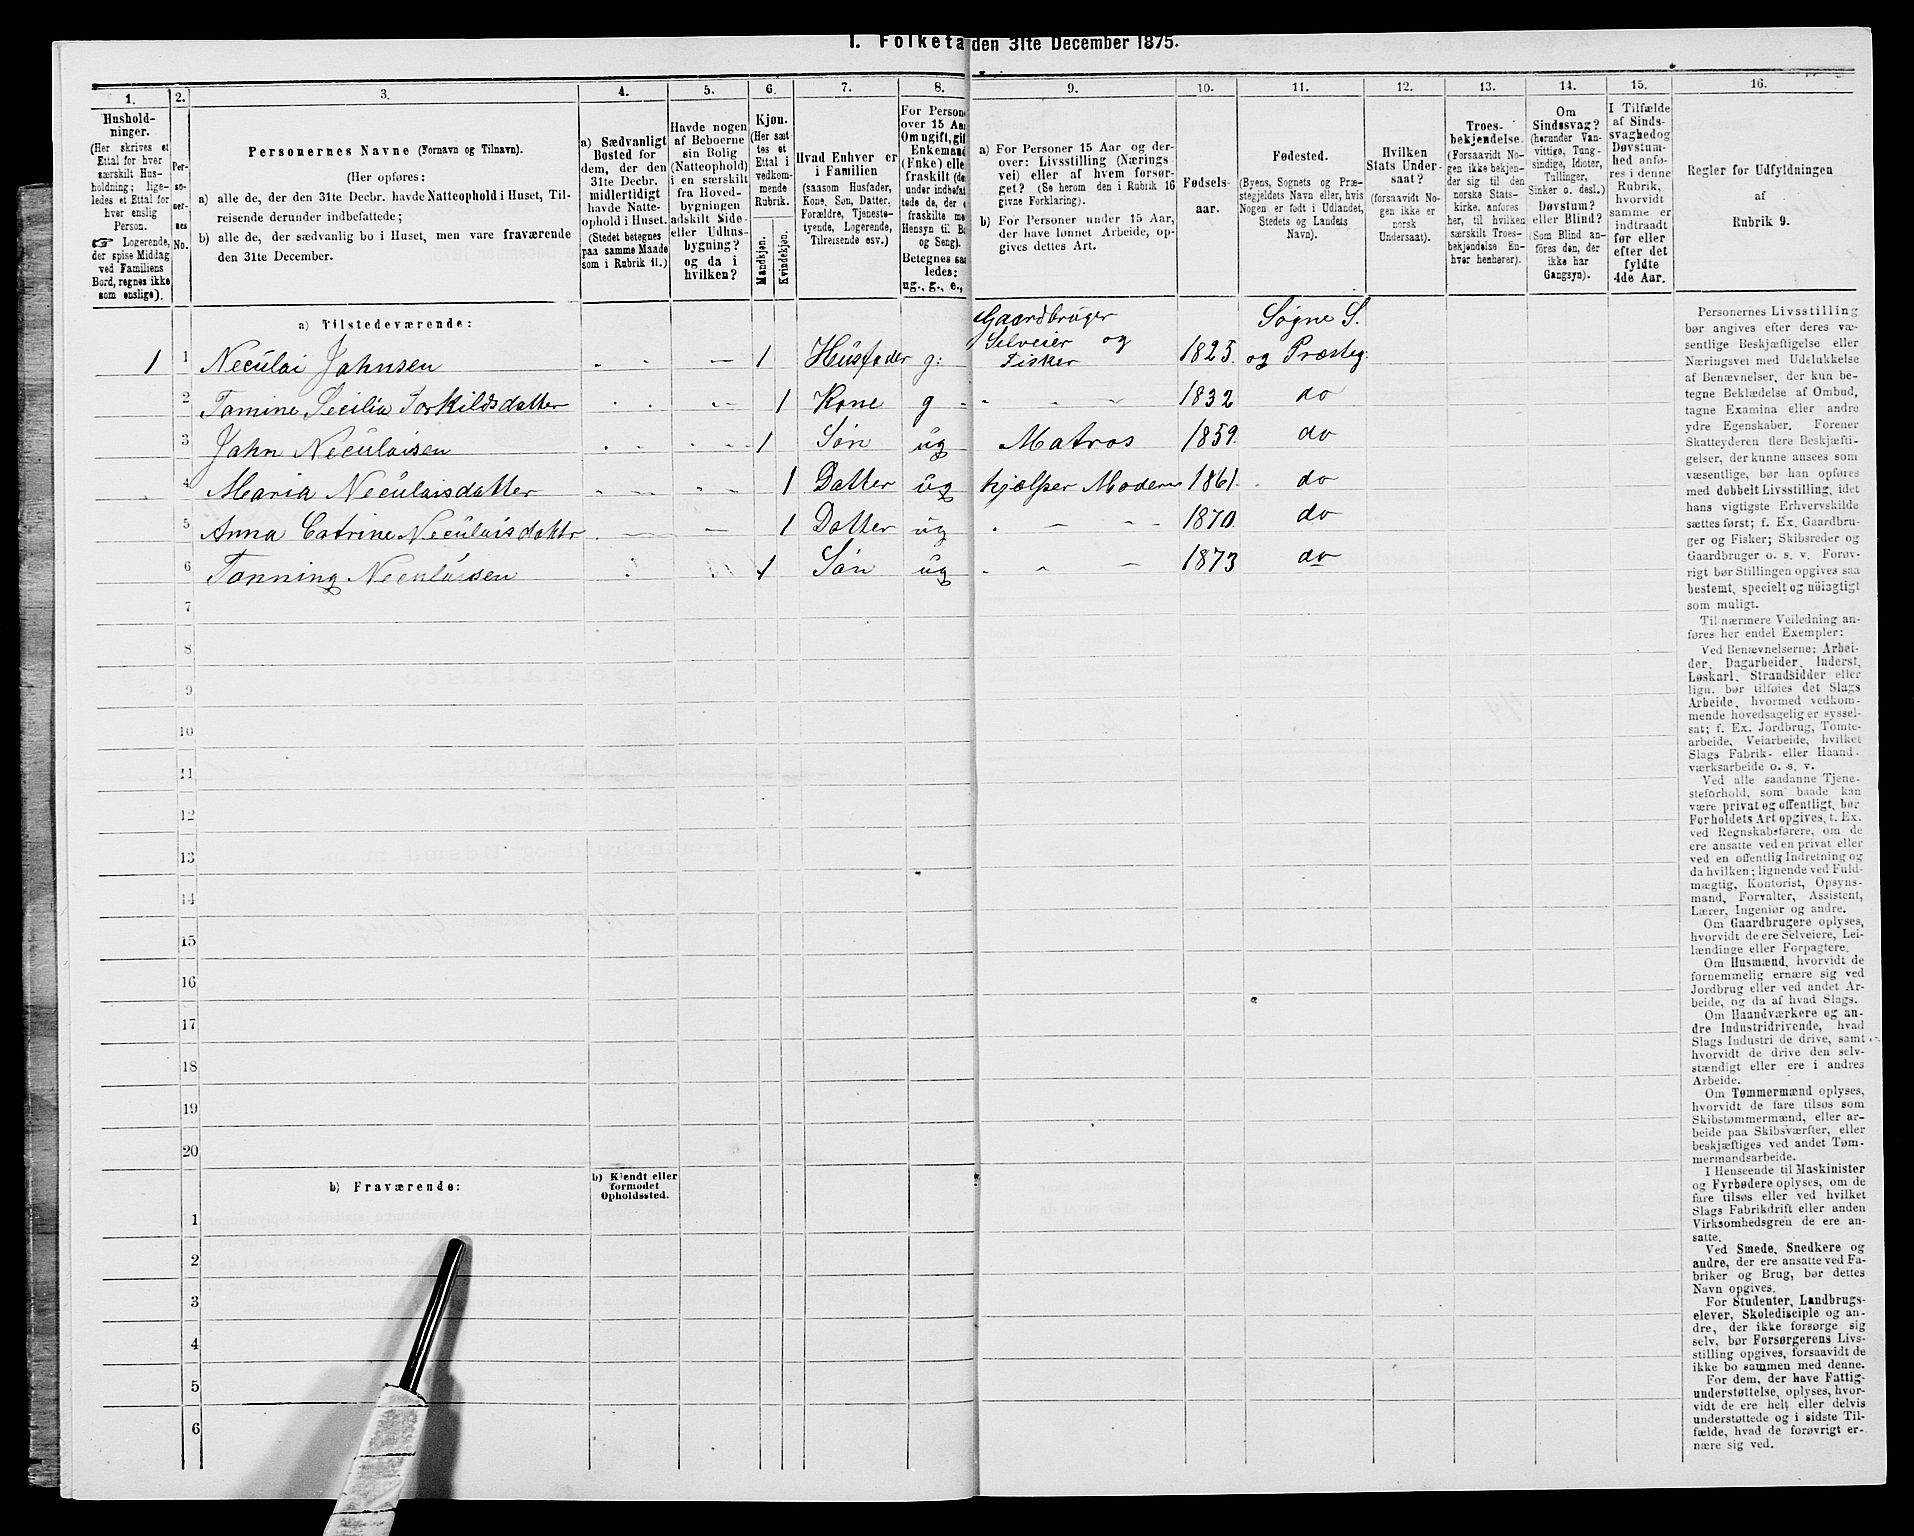 1. Folketa den 31te December 1875.
1. 2. 3. 4. 5. 6. 7. 8. 9. 10. 11. 12. 13. 14. 15. 16.
Hushold-
ninger.
(Her skrives et
Ettal for hver
særskilt Hus-
holdning; lige-
ledes et Ettal for
hver enslig
Person.
☞ Logerende,
der spise Middag
ved Familiens
Bord, regnes ikke
som enslige).
Per-
so-
ner-
nes
No.
Personernes Navne (Fornavn og Tilnavn).
(Her opføres:
a) alle de, der den 31te Decbr. havde Natteophold i Huset, Til-
reisende derunder indbefattede;
b) alle de, der sædvanlig bo i Huset, men vare fraværende
den 31te December.
a) Sædvanligt
Bosted for
dem, der den
31te Decbr.
midlertidigt
havde Natte-
ophold i Huset.
(Stedet betegnes
paa samme Maade
som i Rubrik 11.)
Havde nogen
af Beboerne
sin Bolig
(Natteophold)
i en særskilt
fra Hoved-
bygningen
adskilt Side-
eller Udhus-
bygning?
og da i
hvilken?
Kjøn.
(Her sæt
tes et
Ettal i
vedkom-
mende
Rubrik.
Mandkjøn.
Kvindekjøn.
Hvad Enhver er
i Familien
(saasom Husfader,
Kone, Søn, Datter,
Forældre, Tjeneste-
tyende, Logerende,
Tilreisende osv.)
For Persone
over 15 Aa
Om ugift, gif
Enkemand
(Enke) elle
fraskilt (de
under indbefat
tede de, der e
fraskilte me
Hensyn til Bo
og Seng).
Betegnes saa
ledes:
ug., g., e.,
a) For Personer 15 Aar og der-
over: Livsstilling (Nærings-
vei) eller af hvem forsør-
get? (Se herom den i Rubrik 16
givne Forklaring).
b) For Personer under 15 Aar,
der have lønnet Arbeide, op-
gives dettes Art.
Fødsels-
aar.
Fødested.
(Byens, Sognets og Præ-
stegjeldets Navn eller, hvis
Nogen er født i Udlandet,
Stedets og Landets
Navn).
Hvilken
Stats Under-
saat?
(forsaavidt No-
gen ikke er
norsk
Undersaat).
Troes-
bekjendelse.
(Forsaavidt No-
gen ikke bekjen-
der sig til den
norske Stats-
kirke, anføres
her, til hvilken
særskilt Troes-
bekjendelse En-
hver henhører).
Om
Sindssvag?
(herunder Van-
vittige, Tung-
sindige, Idioter,
Tullinger,
Sinker o. desl.)
Døvstum?
eller Blind?
(Som Blind an-
føres den, der
ikke har
Gangsyn).
I Tilfælde
af Sinds-
svaghed og
Døvstum-
hed anfø-
res i denne
Rubrik,
hvorvidt
samme er
indtraadt
før eller
efter det
fyldte
4de Aar.
Regler for Udfyldningen
af
Rubrik 9.
a) Tilstedeværende:
Gaardbruger Sogne S.
Selveier og
1 1 Neculai Jahnsen 1 Husfader g: Fisker 1825. og Præsteg:
2 Tomine Secilia Torkildsdatter 1 Kone g 1832 do
3 Jahn Neculaisen 1 Søn ug Matros 1859. do
4 Maria Neculaisdatter 1 Datter ug hjælper Moderen 1861. do
5 Anna Catrine Neculaisdattr 1 Datter ug 1870. do
6 Tonning Neculaisen 1 Søn ug 1873 do
7
8
9
10
11
12
13
14
15
16
17
18
19
20
b) Fraværende:
b) Kjendt eller
formodet
Opholdssted.
1
2
3
4
5
6
Personernes Livsstilling
bør angives efter deres væ-
sentlige Beskjæftigelse eller
Næringsvei med Udelukkelse
af Benævnelser, der kun be-
tegne Beklædelse af Ombud,
tagne Examina eller andre
ydre Egenskaber. Forener
Skatteyderen flere Beskjæfti-
gelser, der kunne ansees som
væsentlige, bør han opføres
med dobbelt Livsstilling, idet
hans vigtigste Erhvervskilde
sættes først; f. Ex. Gaardbru-
ger og Fisker; Skibsreder og
Gaardbruger o. s. v. Forøv-
rigt bør Stillingen opgives saa
bestemt, specielt og nöiagtigt
som muligt.
Til nærmere Veiledning an-
føres her endel Exempler:
Ved Benævnelserne: Arbei-
der, Dagarbeider, Inderst,
Løskarl, Strandsidder eller
lign. bør tilføies det Slags
Arbeide, hvormed vedkom-
mende hovedsagelig er syssel-
sat; f. Ex. Jordbrug, Tomte-
arbeide, Veiarbeide, hvilket
Slags Fabrik- eller Haand-
værksarbeide o. s. v.
Ved alle saadanne Tjene-
steforhold, som baade kan
være privat og offentligt, bør
Forholdets Art opgives, f. Ex.
ved Regnskabsførere, om de
ere ansatte ved en privat eller
ved en offentlig Indretning og
da hvilken; lignende ved Fuld-
mægtig, Kontorist, Opsyns-
mand, Forvalter, Assistent,
Lærer, Ingeniør og andre.
Om Gaardbrugere oplyses,
hvorvidt de ere Selveiere, Lei-
lændinge eller Forpagtere.
Om Husmænd, hvorvidt de
fornemmelig ernære sig ved
Jordbrug eller ved andet Ar-
beide, og da af hvad Slags.
Om Haandværkere og an-
dre Industridrivende, hvad
Slags Industri de drive, samt
hvorvidt de drive den selv-
stændigt eller ere i andres
Arbeide.
Om Tømmermænd oplyses,
hvorvidt de fare tilsøs som
Skibstømmermænd, eller ar-
beide paa Skibsværfter, eller
beskjæftiges ved andet Tøm-
mermandsarbeide.
I Henseende til Maskinister
og Fyrbødere oplyses, om de
fare tilsøs eller ved hvilket
Slags Fabrikdrift eller anden
Virksomhedsgren de ere an-
satte.
Ved Smede, Snedkere og
andre, der ere ansatte ved Fa-
briker og Brug, bør dettes
Navn opgives.
For Studenter, Landbrugs-
elever, Skoledisciple og an-
dre, der ikke forsørge sig
selv, bør Forsørgerens Livs-
stilling opgives, forsaavidt de
ikke bo sammen med denne.
For dem, der have Fattig-
understøttelse, oplyses, hvor-
vidt de ere helt eller delvis
understøttede og i sidste Til-
fælde, hvad de forøvrigt er-
nære sig ved.